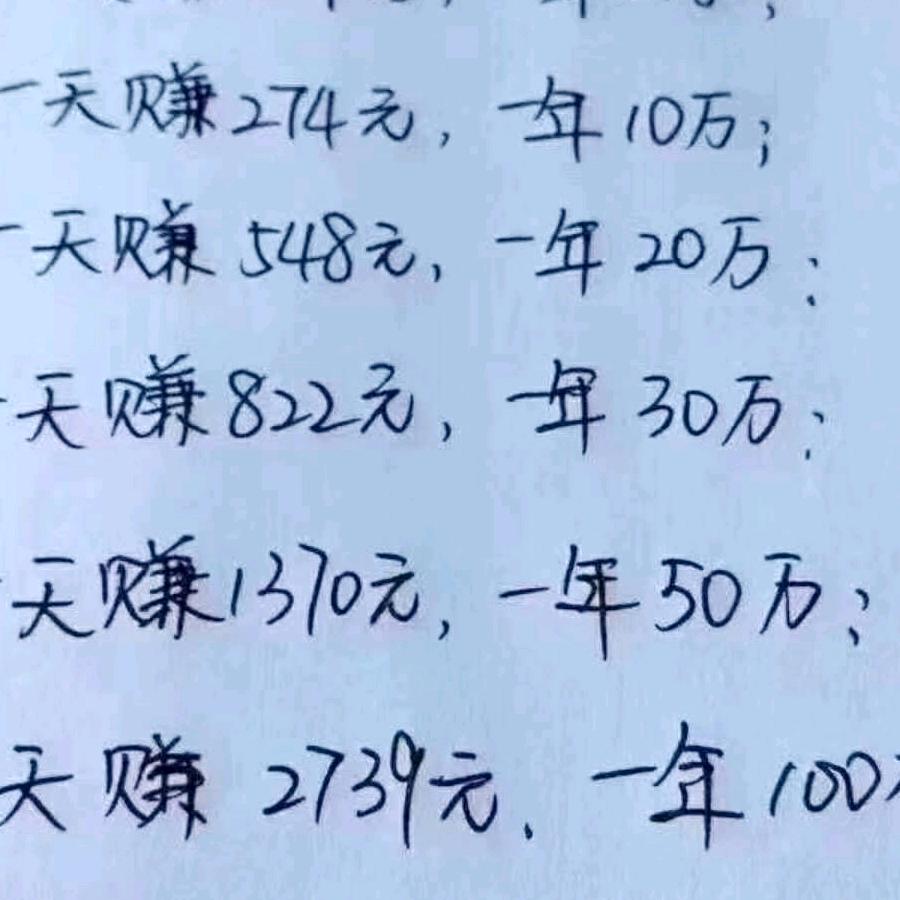 一天赚274元，一年10万；
一天赚548元，一年20万；
一天赚822元，一年30万；
天赚1370元，一年50万；
天赚2739元，一年100